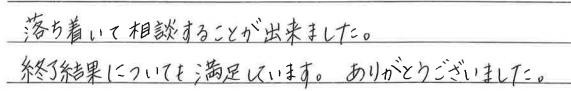 落ち着いて相談することが出来ました。
終了結果についても満足しています。 ありがとうございました。